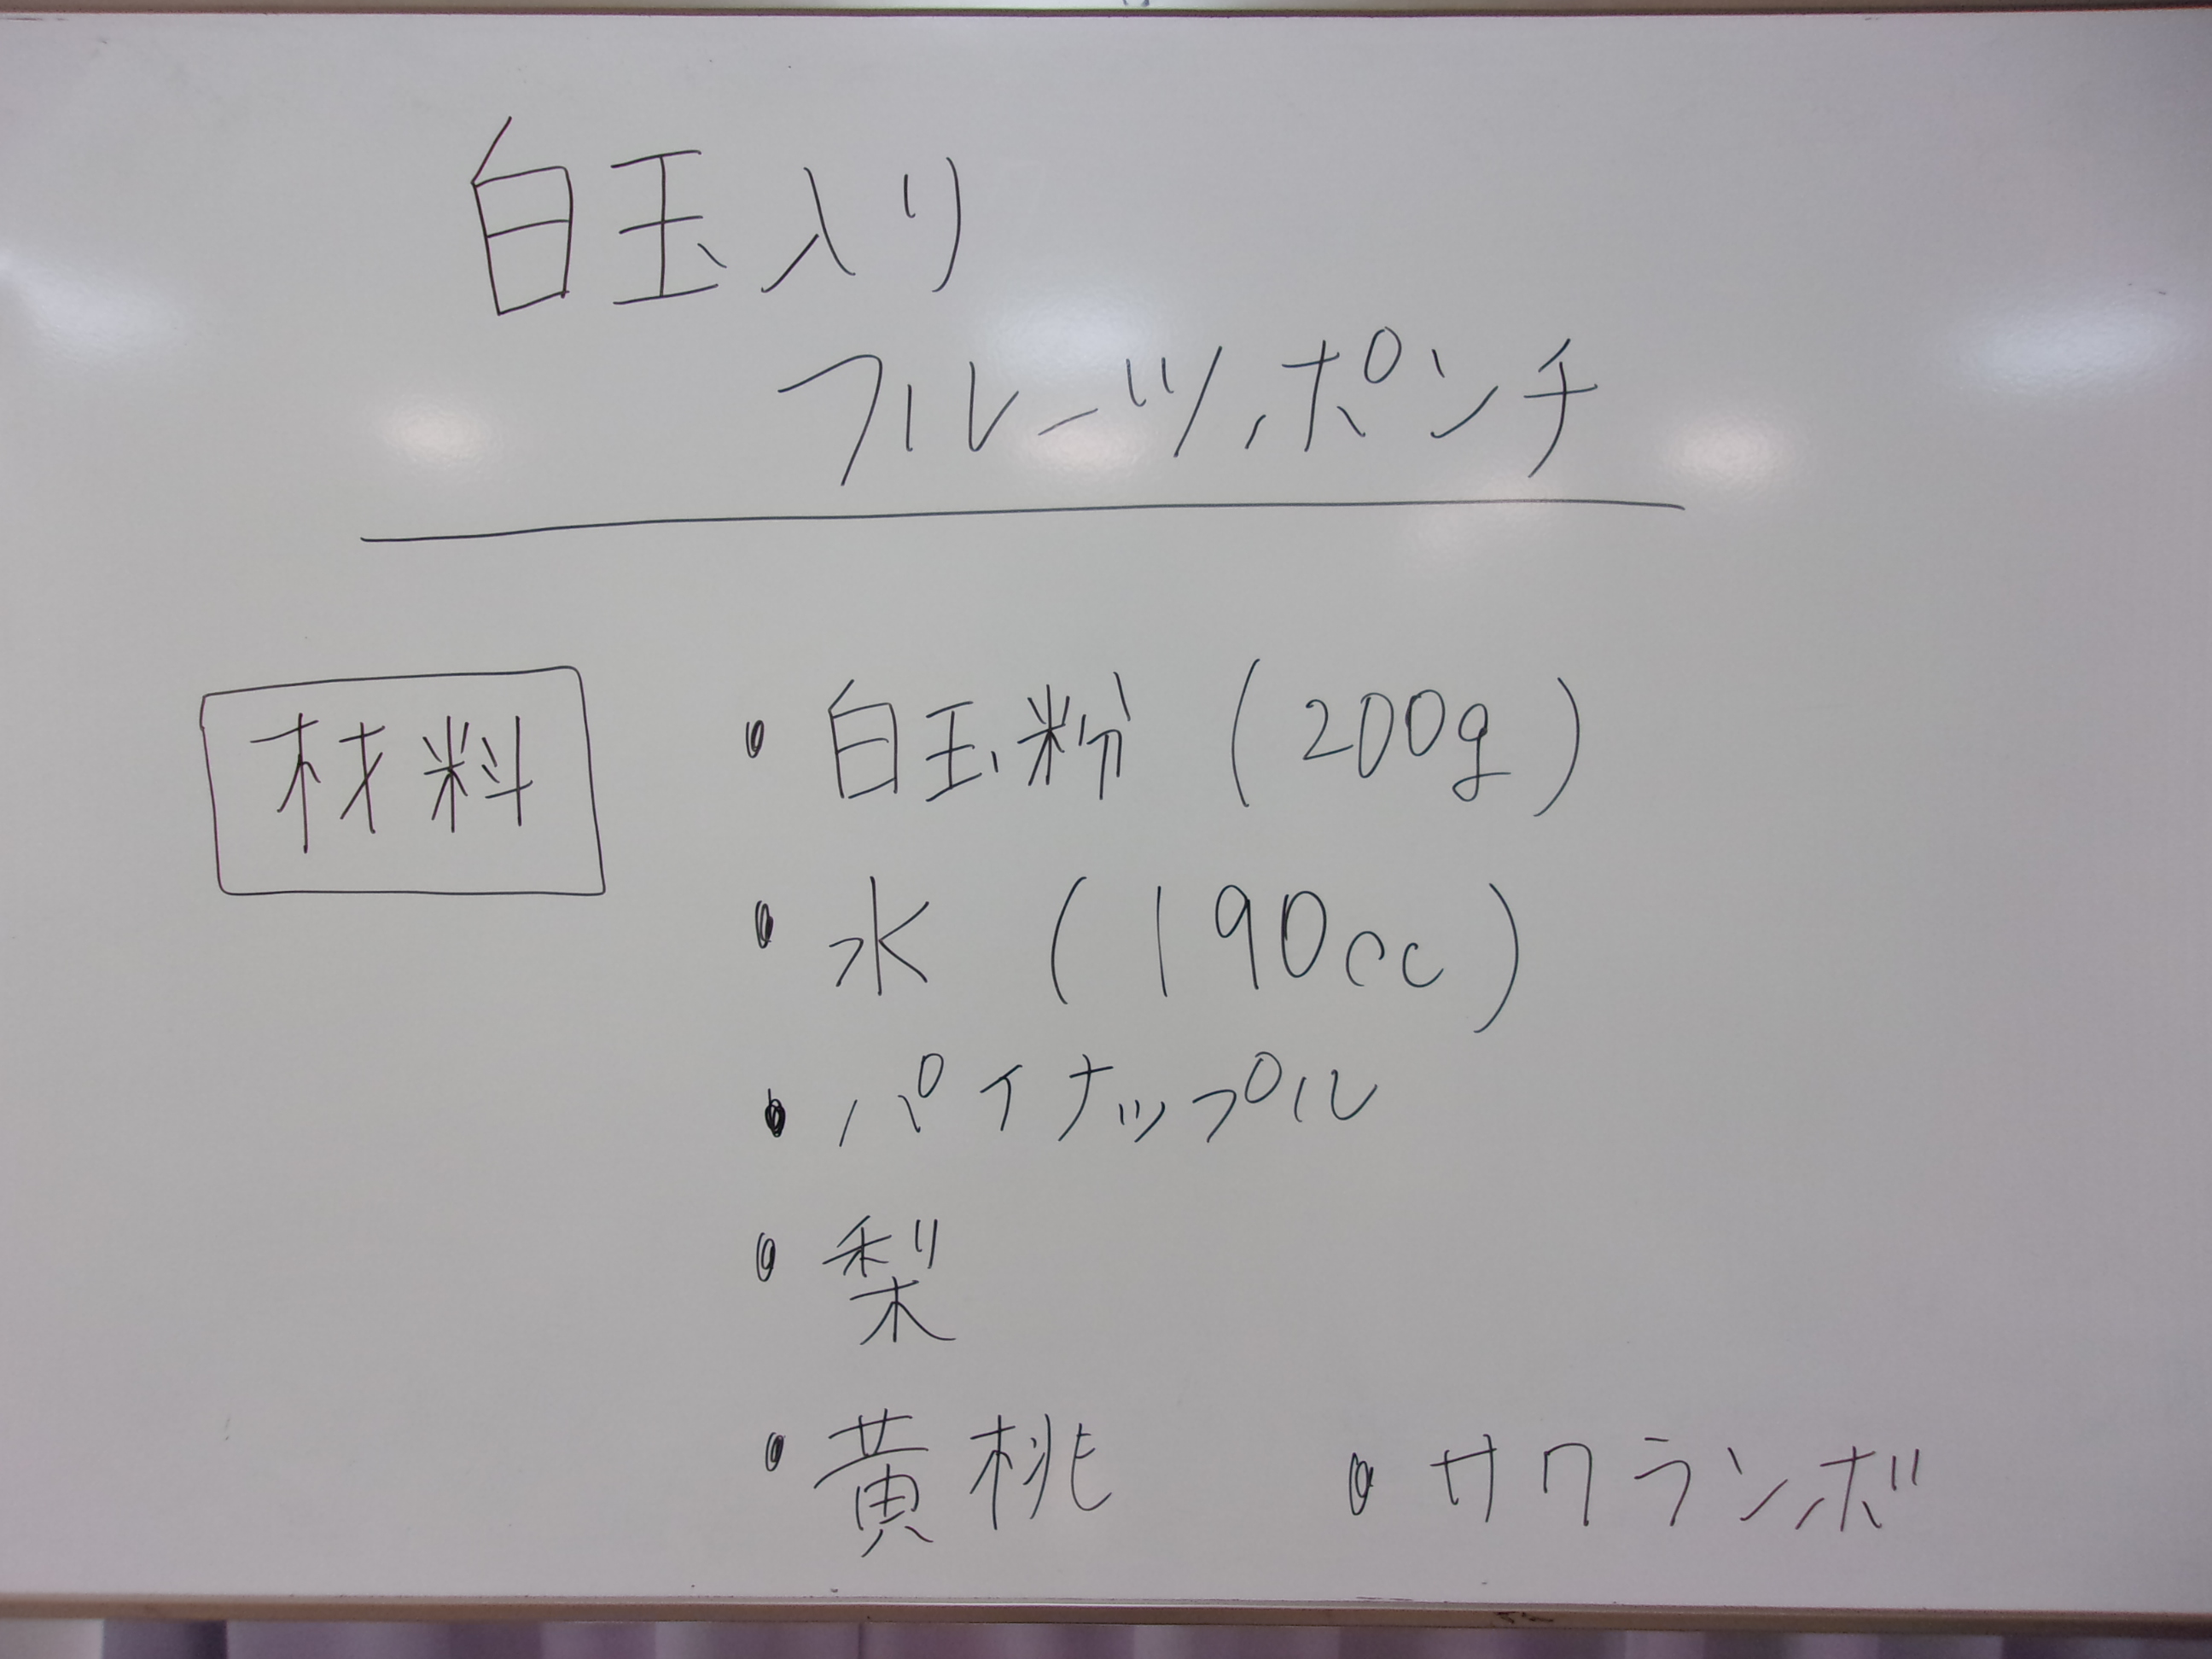 白玉入り
フルーツポンチ
材料
・白玉粉 (200g)
・水 (190cc)
・パイナップル
・梨
・黄桃 ・サクランボ